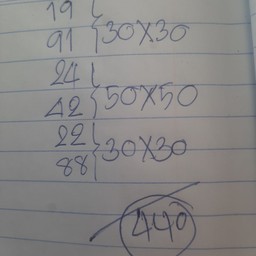 19
91 } 30X30
24
42 } 50X50
22
88 } 30X30
440